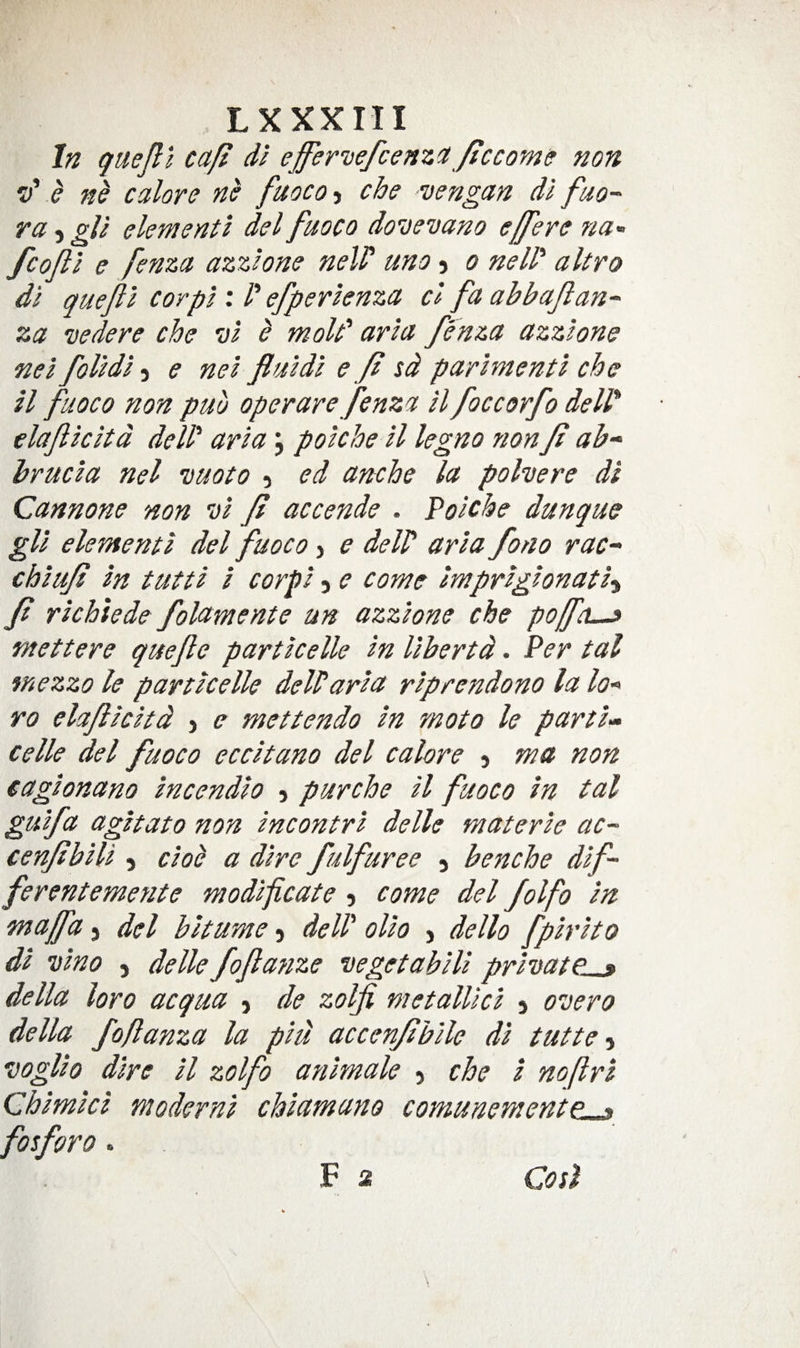 LXXXIII
In queſti caſi di efferveſcenza ſiccome non
v' è nè calore nè fuoco, che vengan di fuo-
ra, gli elementi del fuoco dovevano eſſere na-
ſcoſti e ſenza azzione nell' uno, o nell' altro
di queſti corpi: l' eſperienza ci fa abbaſtan-
za vedere che vi è molt' aria ſenza azzione
nei ſolidi, e nei fluidi e ſi sà parimenti che
il fuoco non può operare ſenza il ſoccorſo dell'
elaſticità dell' aria; poiche il legno non ſi ab-
brucia nel vuoto, ed anche la polvere di
Cannone non vi ſi accende. Poiche dunque
gli elementi del fuoco, e dell' aria ſono rac-
chiuſi in tutti i corpi, e come imprigionati,
ſi richiede ſolamente un azzione che poſſa
mettere queſte particelle in libertà. Per tal
mezzo le particelle dell' aria riprendono la lo-
ro elaſticità, e mettendo in moto le parti-
celle del fuoco eccitano del calore, ma non
cagionano incendio, purche il fuoco in tal
guiſa agitato non incontri delle materie ac-
cenſibili, cioè a dire ſulfuree, benche dif-
ferentemente modificate, come del ſolfo in
maſſa, del bitume, dell' olio, dello ſpirito
di vino, delle ſoſtanze vegetabili private
della loro acqua, de zolfi metallici, overo
della ſoſtanza la più accenſibile di tutte,
voglio dire il zolfo animale, che i noſtri
Chimici moderni chiamano comunemente
fosforo.
F 2 Così